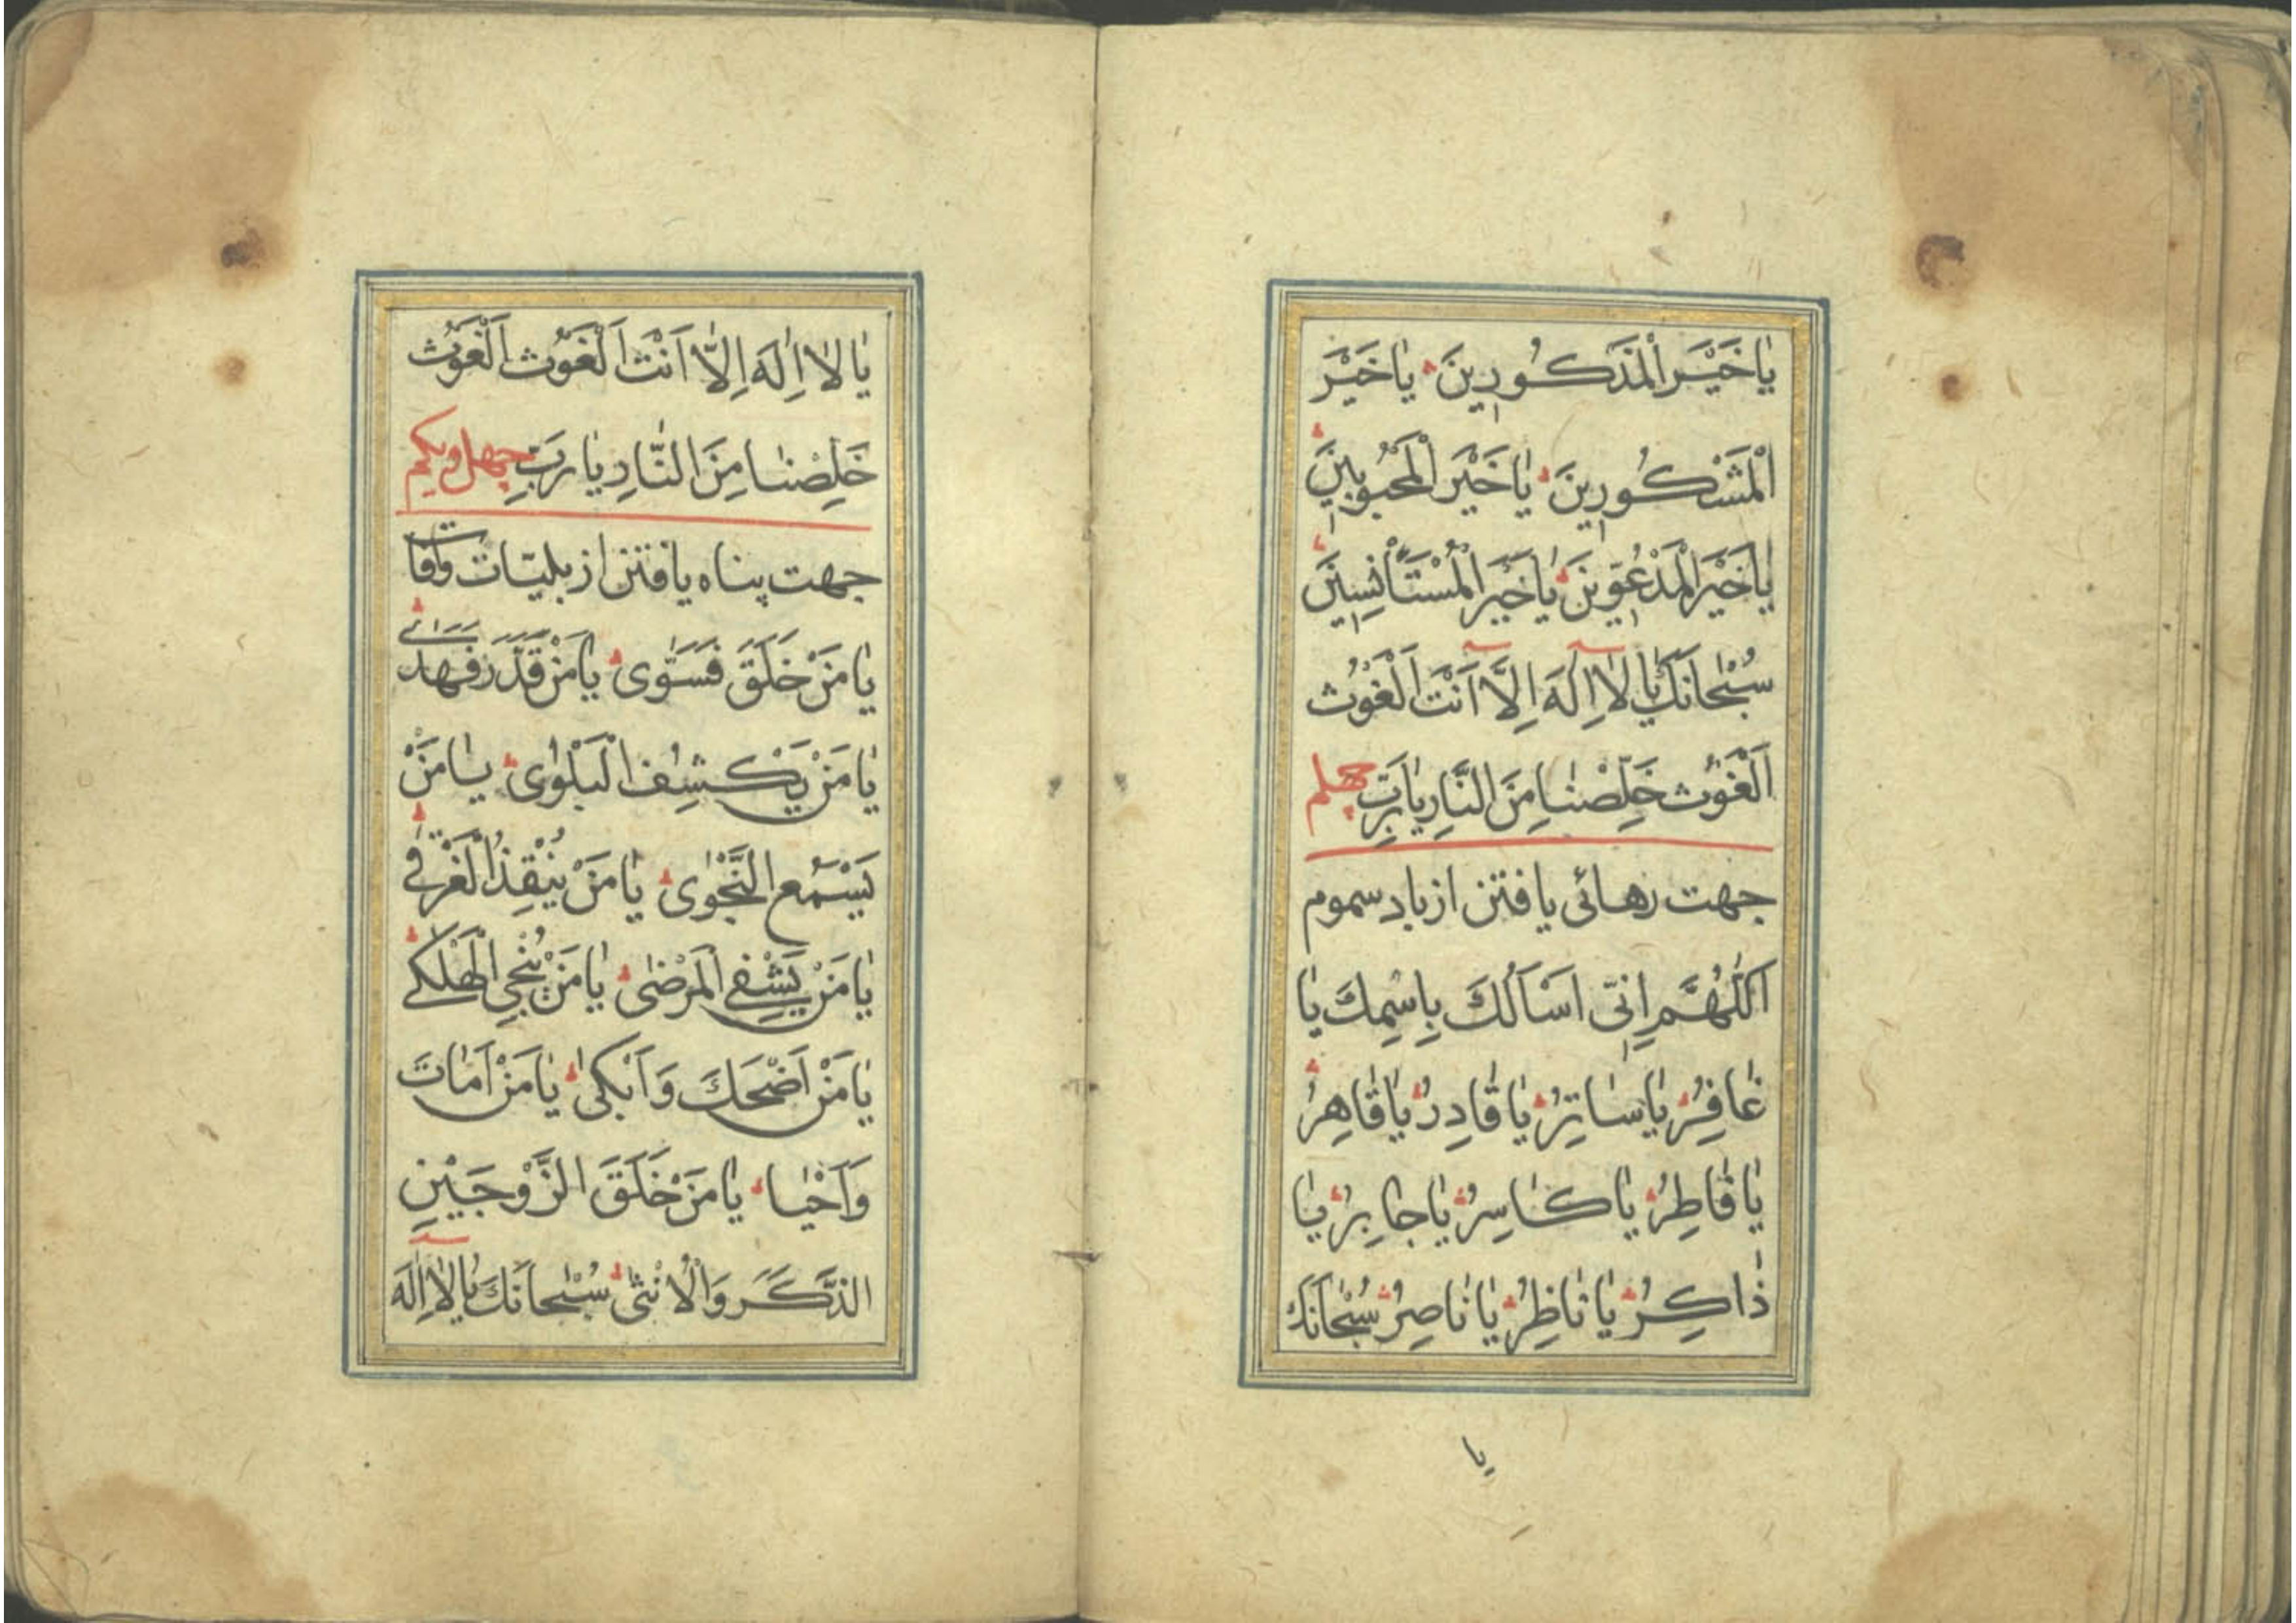 يٰا خَيْرَ الْمَذْكُورِينَ يٰا خَيْرَ
الْمَشْكُورِينَ يٰا خَيْرَ الْمَحْبُوبِينَ
يٰا خَيْرَ الْمَدْعُوِّينَ يٰا خَيْرَ الْمُسْتَأْنِسِينَ
سُبْحٰانَكَ يٰا لٰا اِلٰهَ اِلَّا اَنْتَ اَلْغَوْث
اَلْغَوْث خَلِّصْنٰا مِنَ النَّارِ يٰا رَبِّ چهلم
جهت رهائى يافتن از باد سموم
اَللّٰهُمَّ اِنّى اَسْاَلُكَ بِاسْمِكَ يٰا
غٰافِرُ يٰا سٰاتِرُ يٰا قٰادِرُ يٰا قٰاهِرُ
يٰا فٰاطِرُ يٰا كٰاسِرُ يٰا جٰابِرُ يٰا
ذٰاكِرُ يٰا نٰاظِرُ يٰا نٰاصِرُ سُبْحٰانَكَ
يا
يٰا لٰا اِلٰهَ اِلَّا اَنْتَ اَلْغَوْث اَلْغَوْث
خَلِّصْنٰا مِنَ النَّارِ يٰا رَبِّ چهل ويكم
جهت پناه يافتن از بليّات وآفات
يٰا مَنْ خَلَقَ فَسَوّٰى يٰا مَنْ قَدَّرَ فَهَدٰى
يٰا مَنْ يَكْشِفُ الْبَلْوٰى يٰا مَنْ
يَسْمَعُ النَّجْوٰى يٰا مَنْ يُنْقِذُ الْغَرْقٰى
يٰا مَنْ يَشْفِى الْمَرْضٰى يٰا مَنْ يُنْجِى الْهَلْكٰى
يٰا مَنْ اَضْحَكَ وَاَبْكىٰ يٰا مَنْ اَمٰاتَ
وَاَحْيٰا يٰا مَنْ خَلَقَ الزَّوْجَيْنِ
الذَّكَرَ وَالْاُنْثىٰ سُبْحٰانَكَ يٰا لٰا اِلٰهَ